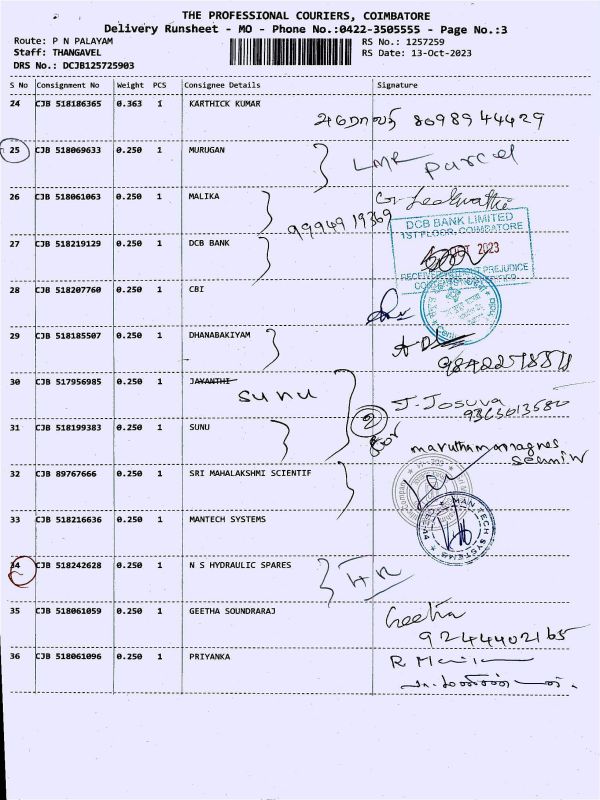 THE PROFESSIONAL COURIERS, COIMBATORE
Delivery Runsheet - MO - Phone No.:0422-3505555 - Page No.:3
Route: P N PALAYAM
RS No.: 1257259
Staff: THANGAVEL
RS Date: 13-Oct-2023
DRS No.: DCJB125725903
S No Consignment No Weight PCS Consignee Details Signature
24 CJB 518186365 0.363 1 KARTHICK KUMAR
8098944429
25 CJB 518069633 0.250 1 MURUGAN
LMR parcel
26 CJB 518061063 0.250 1 MALIKA
9994919369
DCB BANK LIMITED
1ST FLOOR, COIMBATORE
27 CJB 518219129 0.250 1 DCB BANK
OCT 2023
28 CJB 518207760 0.250 1 CBI
29 CJB 518185507 0.250 1 DHANABAKIYAM
30 CJB 517956985 0.250 1 JAYANTHI
sunu
J. Josuva
9363013580
31 CJB 518199383 0.250 1 SUNU
2
32 CJB 89767666 0.250 1 SRI MAHALAKSHMI SCIENTIF
33 CJB 518216636 0.250 1 MANTECH SYSTEMS
34 CJB 518242628 0.250 1 N S HYDRAULIC SPARES
35 CJB 518061059 0.250 1 GEETHA SOUNDRARAJ
Geetha
9244402165
36 CJB 518061096 0.250 1 PRIYANKA